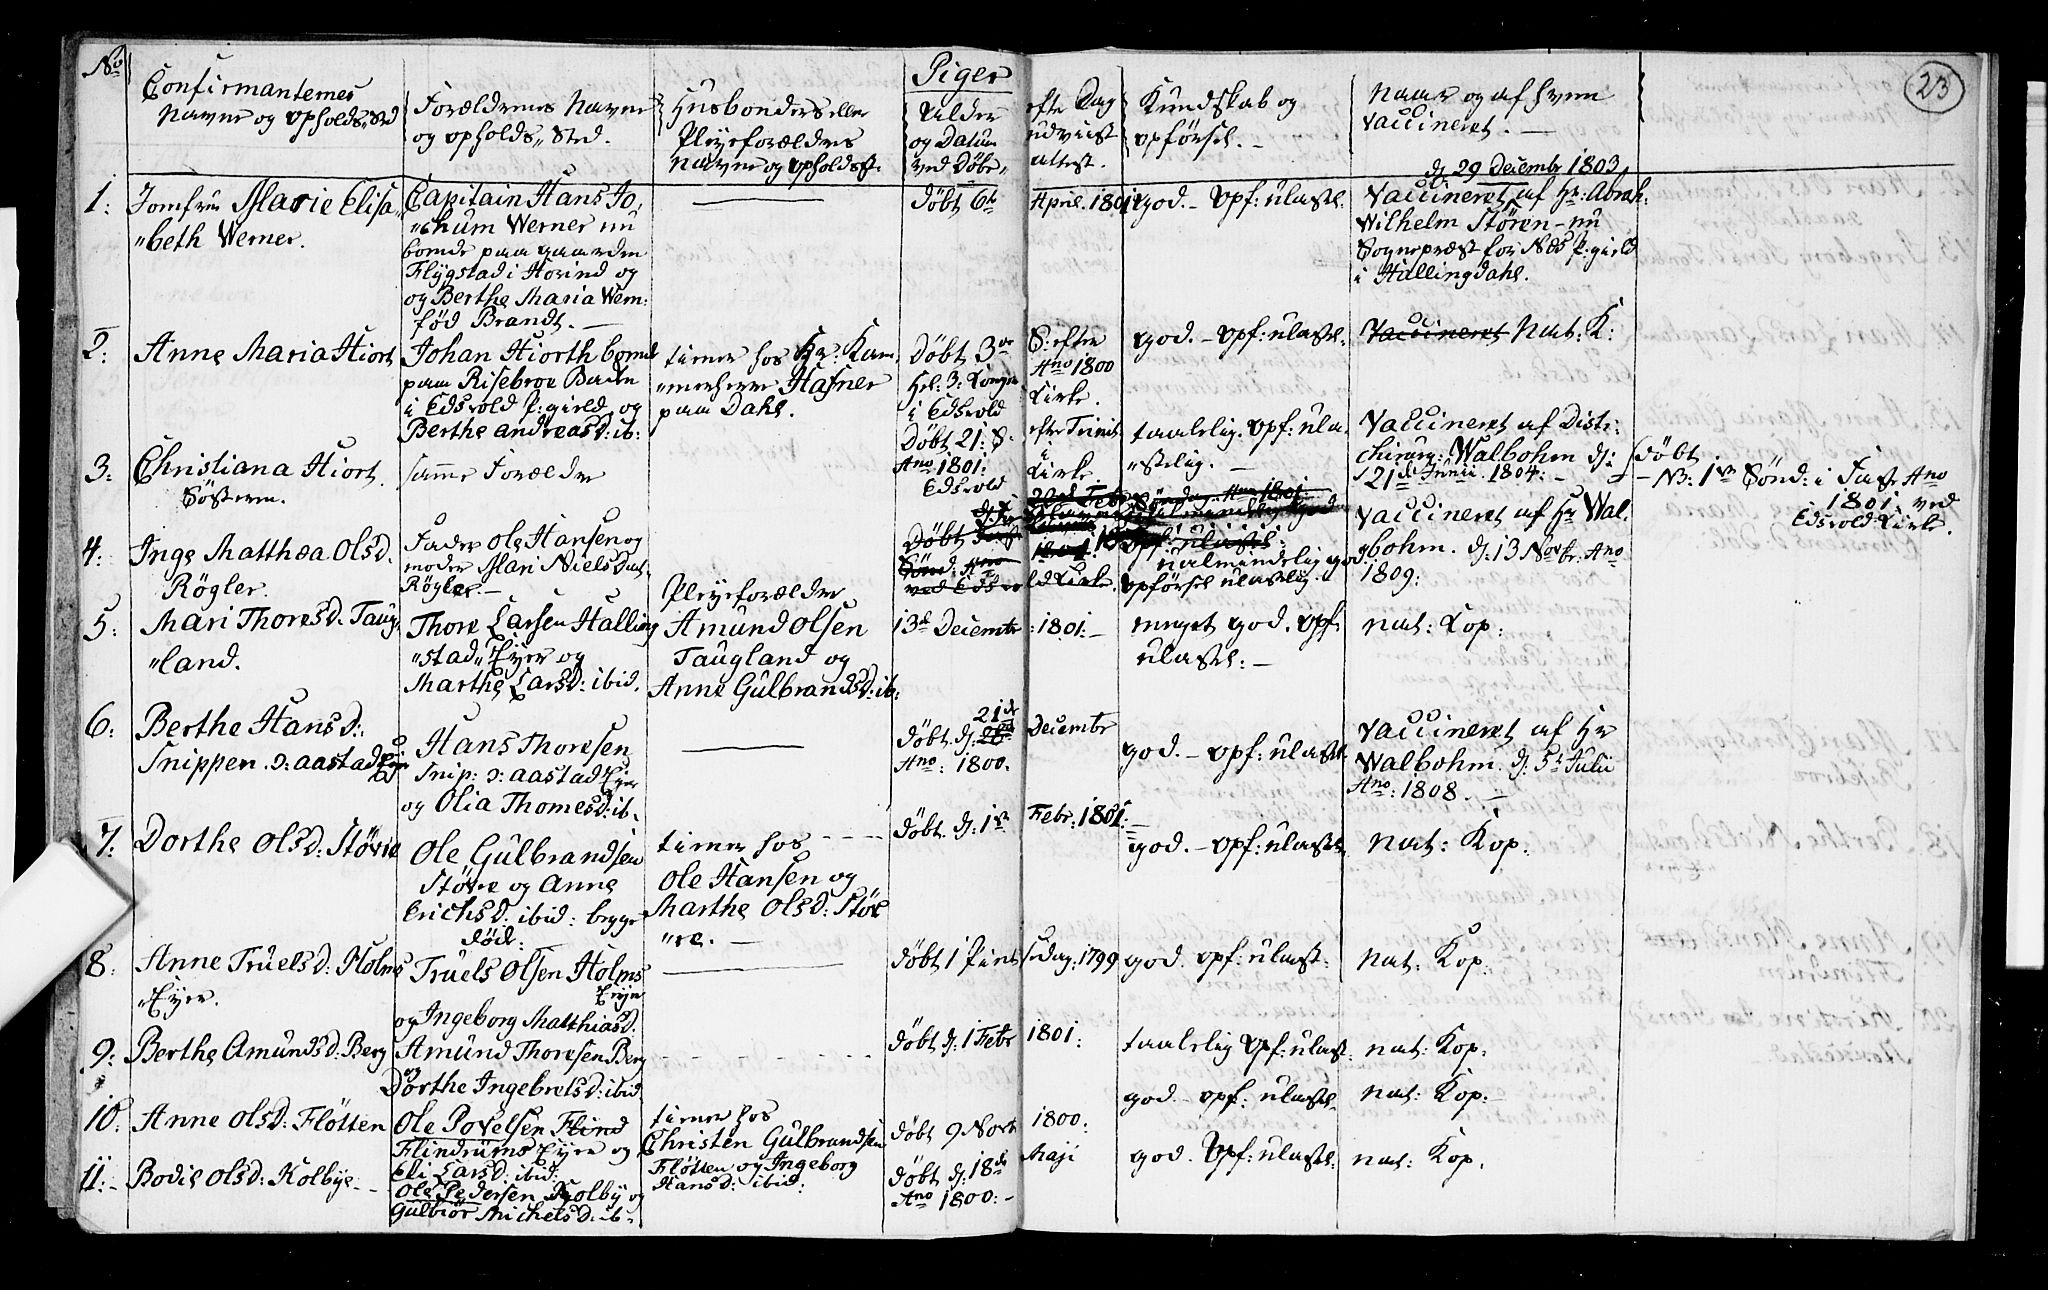 No
Confirmanternes
Navne og Opholds,, Sted
Forældrenes Navne
og Opholds,, Sted.
Husbonders eller
Pleyeforældres
Navne og Opholdsst.
Piger
Alder
og Datum
ved Døbe-
efter Dag
udviist
Attest.
Kundskab og
Opførsel. -
Naar og af hvem
Vaccineret. -
23
1: Jomfru Marie Elisa,,
,,beth Werner.
Capitain Hans Jo,,
,,chum Werner nu
boende paa Gaarden
Flÿgstad i Hovind og
og Berthe Maria Wern:
fød Brandt. -
Døbt 6te April. 1801
god. - Opf: ulastl:
d. 29 Decembr 1803
Vaccineret af Hr: Abrah:
Wilhelm Stören - nu
Sognepræst for Næs P:gield
i Hallingdahl.
2: Anne Maria Hiort
Johan Hiorth boende
paa Risebroe Baden
i Edsvold P:gield og
Berthe Andreasd: ib:
tiener hos Hr: Kam,,
,,merherre Hafner
paa Dahl.
Døbt 3de S: efter
Hel: 3: Konger Ano 1800
i Edsvold Kirke.
god. - Opf: ulastl.
Vaccineret Nat: K:
3: Christiana Hiort.
Søsteren.
samme Forældre
Døbt 21: S. efter Trinit
Ano 1801: i
Edsvold Kirke
taalelig. Opf: ula,,
,,stelig. -
Vaccineret af Distr:
Chirurg: Walbohm d:
21de Junii 1804: -
4: Inge Matthæa Olsd.
Røgler.
Fader Ole Hansen og
moder Mari Nielsdat.
Røgler. -
Døbt
Sönd: Ano
ved Edsvold Kirke.
ualmindelig god
Opførsel ulastelig.
Vaccineret af Hr Wal,,
bohm. d: 13 Novbr: Ano
1809:
Døbt
- N3: 1ste Sönd: i Faste Ano
1801: ved
Edsvold Kirke.
5: Mari Thoresd. Taug,,
,,land.
Thore Larsen Halling
,,stad,, Eyer og
Marthe Larsd: ibid.
Pleyeforældre
Amund Olsen
Taugland og
Anne Gulbrandsd: ib:
13de Decembr :1801: -
meget god. Opf:
ulastl: -
nat: Kop:
6: Berthe Hansd:
Snippen ɔ: Aastad Eyer
Hans Thoresen
Snip: ɔ: Aastad Eyer
og Olia Thomesd: ib.
Døbt. d: 21de Decembr
Ano: 1800.
god. - Opf: ulastl:
Vaccineret af Hr
Walbohm. d: 5te Julii
Ano: 1808. -
7: Dorthe Olsd: Støvre
Ole Gulbrandsen
Støvre og Anne
Erichsd: ibid: begge
død:
tiener hos - - -
Ole Hansen og
Marthe Olsd: Støv
,,re. -
Døbt. d: 1ste Febr: 1801: -
god. - Opf: ulastl.
Nat: Kop:
8: Anne Truelsd: Holms
,,Eyer.
Truels Olsen Holms
Eyer
og Ingeborg Matthiasd.
Døbt 1 Pintsedag: 1799
god. Opf: ulast:
Nat: Kop:
9: Berthe Amundsd: Berg
Amund Thoresen Berg
og
Dorthe Ingebretsd: ibid
Døbt d: 1 Febr 1801:
taalelig Opf: ulast:
nat: Kop:
10: Anne Olsd: Fløtten
Ole Povelsen Flind
Flindrums Eyer og
Eli Larsd: ibid:
tiener hos
Christen Gulbrandsen
Fløtten og Ingeborg
Hansd: ibid:
Døbt 9 Novb 1800:
god - Opf: ulastl.
Nat: Kop:
11: - Bodil Olsd: Kolbye - -
Ole Pedersen Kolby og
Gulbiør Michelsd: ib-
Døbt d: 18de Maji
Ano 1800: -
god. Opf: ulastl:
nat: Kop: